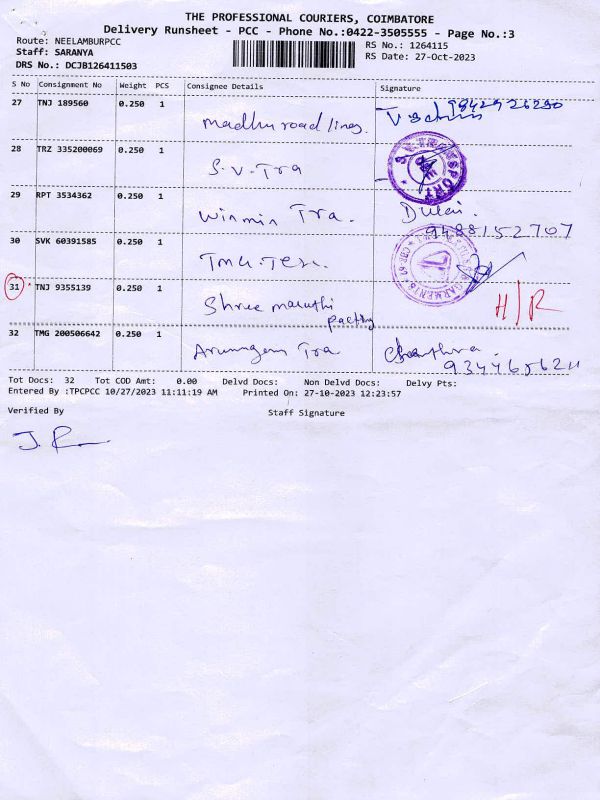 THE PROFESSIONAL COURIERS, COIMBATORE
Delivery Runsheet - PCC - Phone No.:0422-3505555 - Page No.:3
Route: NEELAMBURPCC
Staff: SARANYA
DRS No.: DCJB126411503
RS No.: 1264115
RS Date: 27-Oct-2023
S No Consignment No Weight PCS Consignee Details Signature
27 TNJ 189560 0.250 1
Madhu road lines.
28 TRZ 335200069 0.250 1
S.V. Tra
29 RPT 3534362 0.250 1
Winmin Tra.
9488152707
30 SVK 60391585 0.250 1
31 * TNJ 9355139 0.250 1
Shree maruthi
packing
H/R
32 TMG 200506642 0.250 1
Arumugam Tra
Tot Docs: 32 Tot COD Amt: 0.00 Delvd Docs: Non Delvd Docs: Delvy Pts:
Entered By :TPCPCC 10/27/2023 11:11:19 AM Printed On: 27-10-2023 12:23:57
Verified By Staff Signature